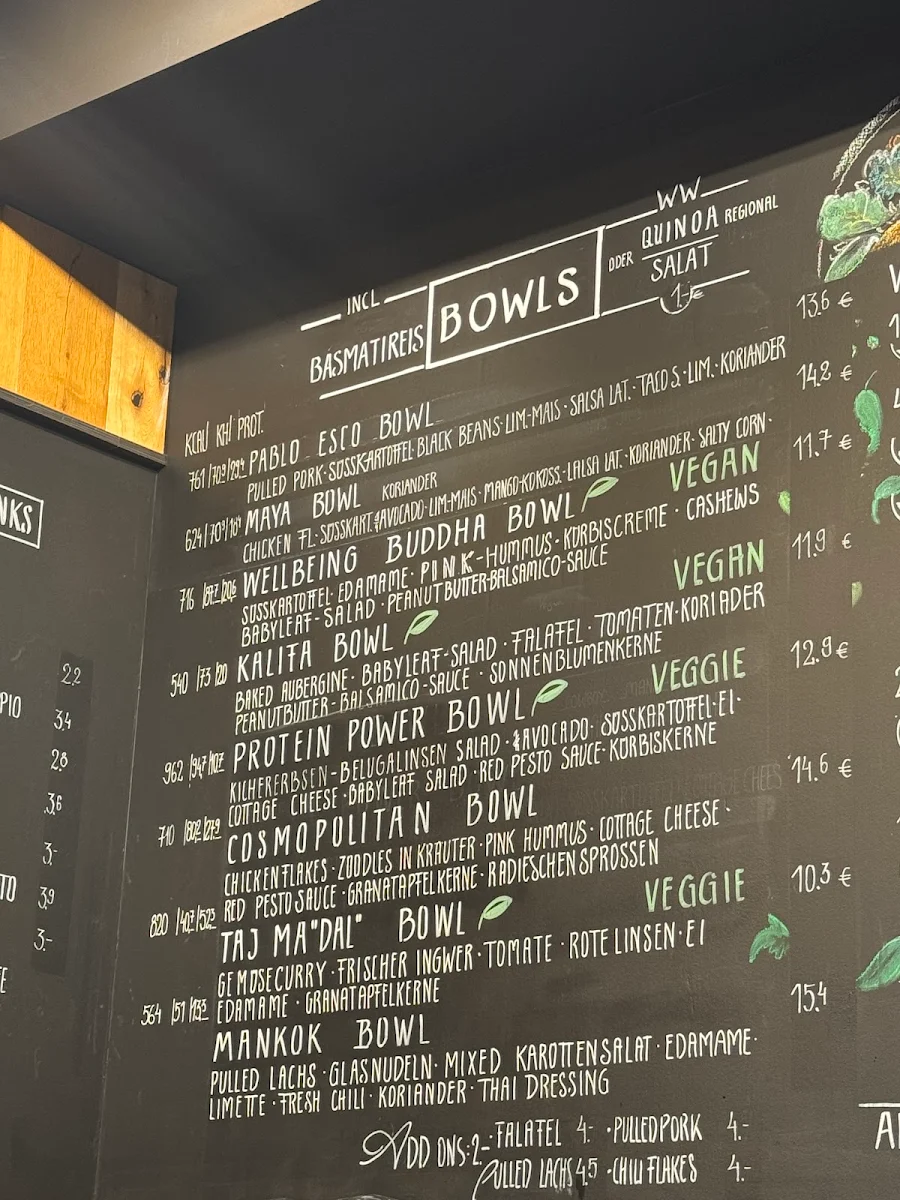 INCL
BASMATIREIS
BOWLS
ODER
WW
QUINOA REGIONAL
SALAT
1.-€
KCAL/ KH/ PROT.
PABLO ESCO BOWL 13.6 €
PULLED PORK·SÜSSKARTOFFEL·BLACK BEANS·LIM-MAIS·SALSA LAT.·TACO S.·LIM.·KORIANDER
MAYA BOWL KORIANDER 14.2 €
CHICKEN FL.·SÜSSKART.·½AVOCADO·LIM-MAIS·MANGO-KOKOSS.·LALSA LAT.·KORIANDER·SALTY CORN·
WELLBEING BUDDHA BOWL VEGAN 11.7 €
SÜSSKARTOFFEL·EDAMAME·PINK-HUMMUS·KÜRBISCREME·CASHEWS
BABYLEAF-SALAD·PEANUTBUTTER-BALSAMICO-SAUCE
540 /73 /20 KALIFA BOWL VEGAN 11.9 €
BAKED AUBERGINE·BABYLEAF-SALAD·FALAFEL·TOMATEN·KORIADER
PEANUTBUTTER-BALSAMICO-SAUCE·SONNENBLUMENKERNE
PROTEIN POWER BOWL VEGGIE 12.9 €
KICHERERBSEN-BELUGALINSEN SALAD·½AVOCADO·SÜSSKARTOFFEL·EI·
COTTAGE CHEESE·BABYLEAF SALAD·RED PESTO SAUCE·KÜRBISKERNE
COSMOPOLITAN BOWL 14.6 €
CHICKENFLAKES·ZOODLES IN KRÄUTER·PINK HUMMUS·COTTAGE CHEESE·
RED PESTO SAUCE·GRANATAPFELKERNE·RADIESCHENSPROSSEN
TAJ MA"DAL" BOWL VEGGIE 10.3 €
GEMÜSECURRY·FRISCHER INGWER·TOMATE·ROTE LINSEN·EI
EDAMAME·GRANATAPFELKERNE
MANKOK BOWL 15.4
PULLED LACHS·GLASNUDELN·MIXED KAROTTENSALAT·EDAMAME·
LIMETTE·FRESH CHILI·KORIANDER·THAI DRESSING
ADD ONS:2.- FALAFEL 4.- ·PULLED PORK 4.-
PULLED LACHS 4.5 ·CHILI FLAKES 4.-
NKS
2.2
PIO 3.4
2.8
3.6
3.-
TO 3.9
3.-